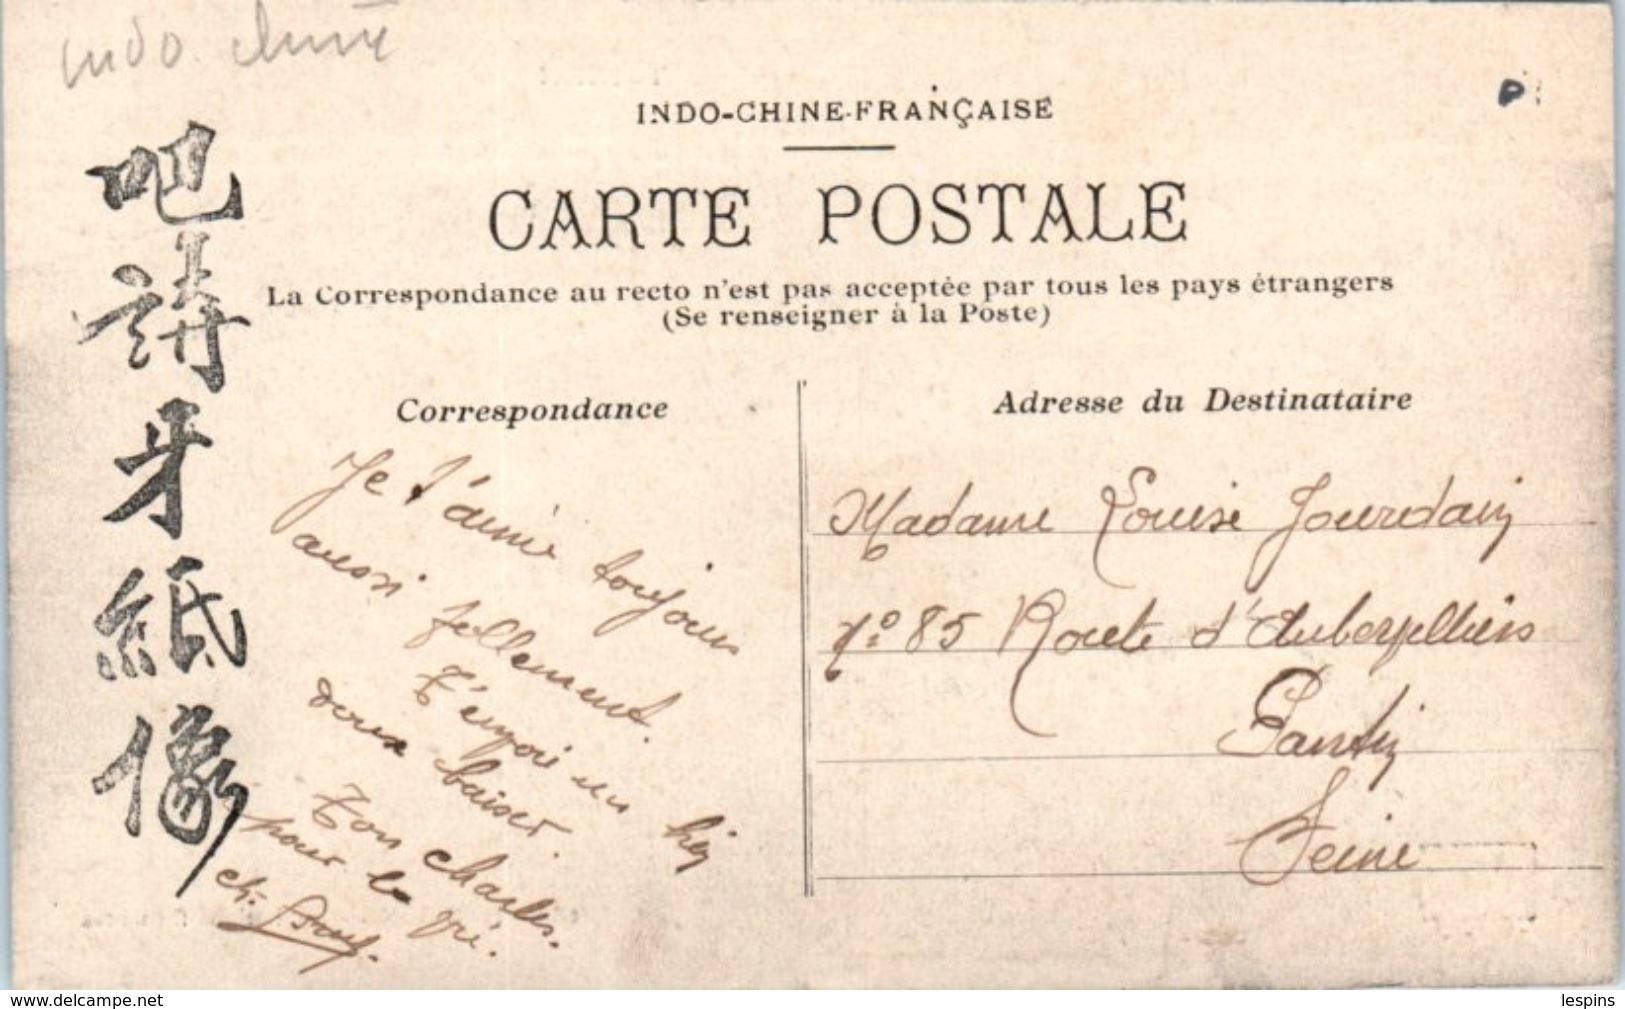 Indo. chine
INDO-CHINE-FRANÇAISE
CARTE POSTALE
La Correspondance au recto n'est pas acceptée par tous les pays étrangers
(Se renseigner à la Poste)
吧
詩
牙
紙
像
Correspondance
Je t'aime toujours
aussi follement.
T'envoi un bien
doux baiser.
Ton Charles.
pour la
Ch.
Adresse du Destinataire
Madame Louise Jourdain
Nº 85 Route d'Aubervilliers
Pantin
Seine
www.delcampe.net
lespins